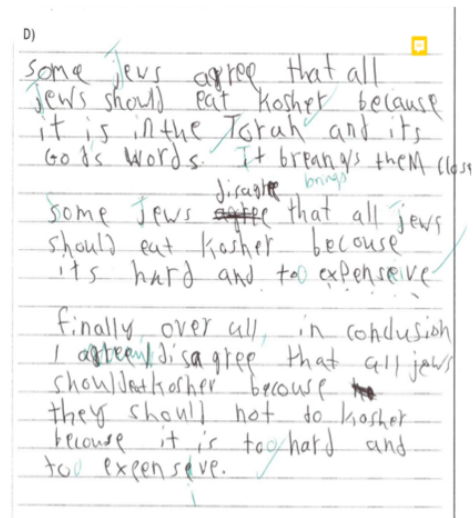 D)
Some Jews agree that all
Jews should eat Kosher because
it is in the Torah and its
God's words. It breangs them clos
brings
disagree
Some Jews agree that all Jews
should eat kosher becouse
its hard and too expenseive
finally over all, in conclusion
I disagree that all jews
should eat kosher becouse
they should not do kosher
becouse it is too hard and
too expensive.